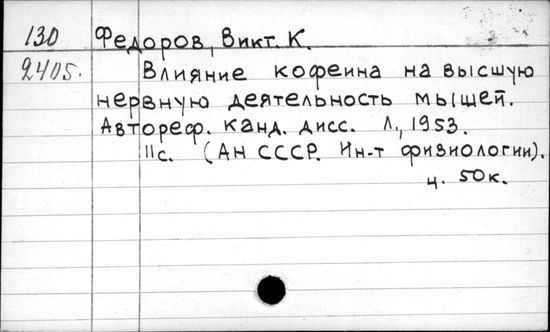 130 Федоров, Викт. К.
2405. Влияние кофеина на высшую
нервную деятельность мышей.
Автореф. канд. дисс. Л., 1953.
11с. (АН СССР. Ин-т физиологии).
ц. 50к.